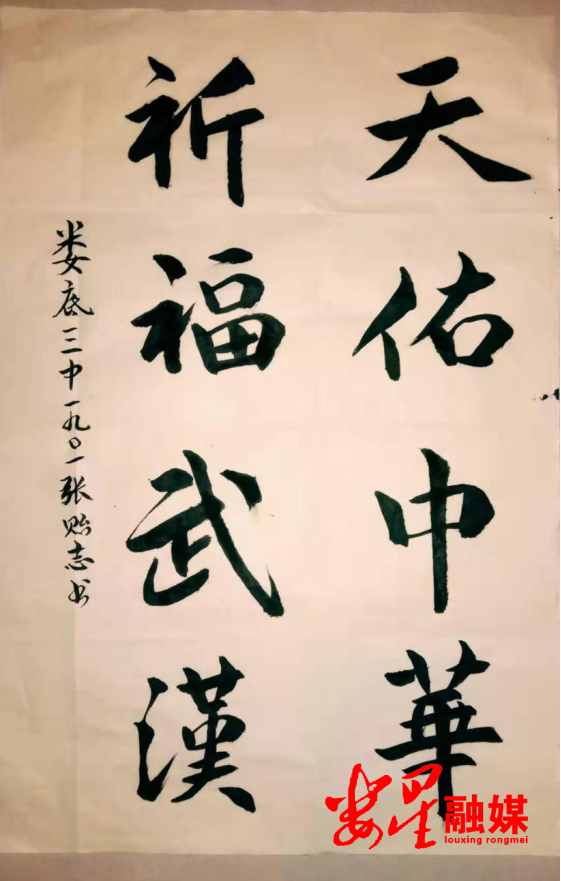 天佑中華
祈福武漢
娄底三中一九〇一张贻志书
娄星融媒
louxing rongmei